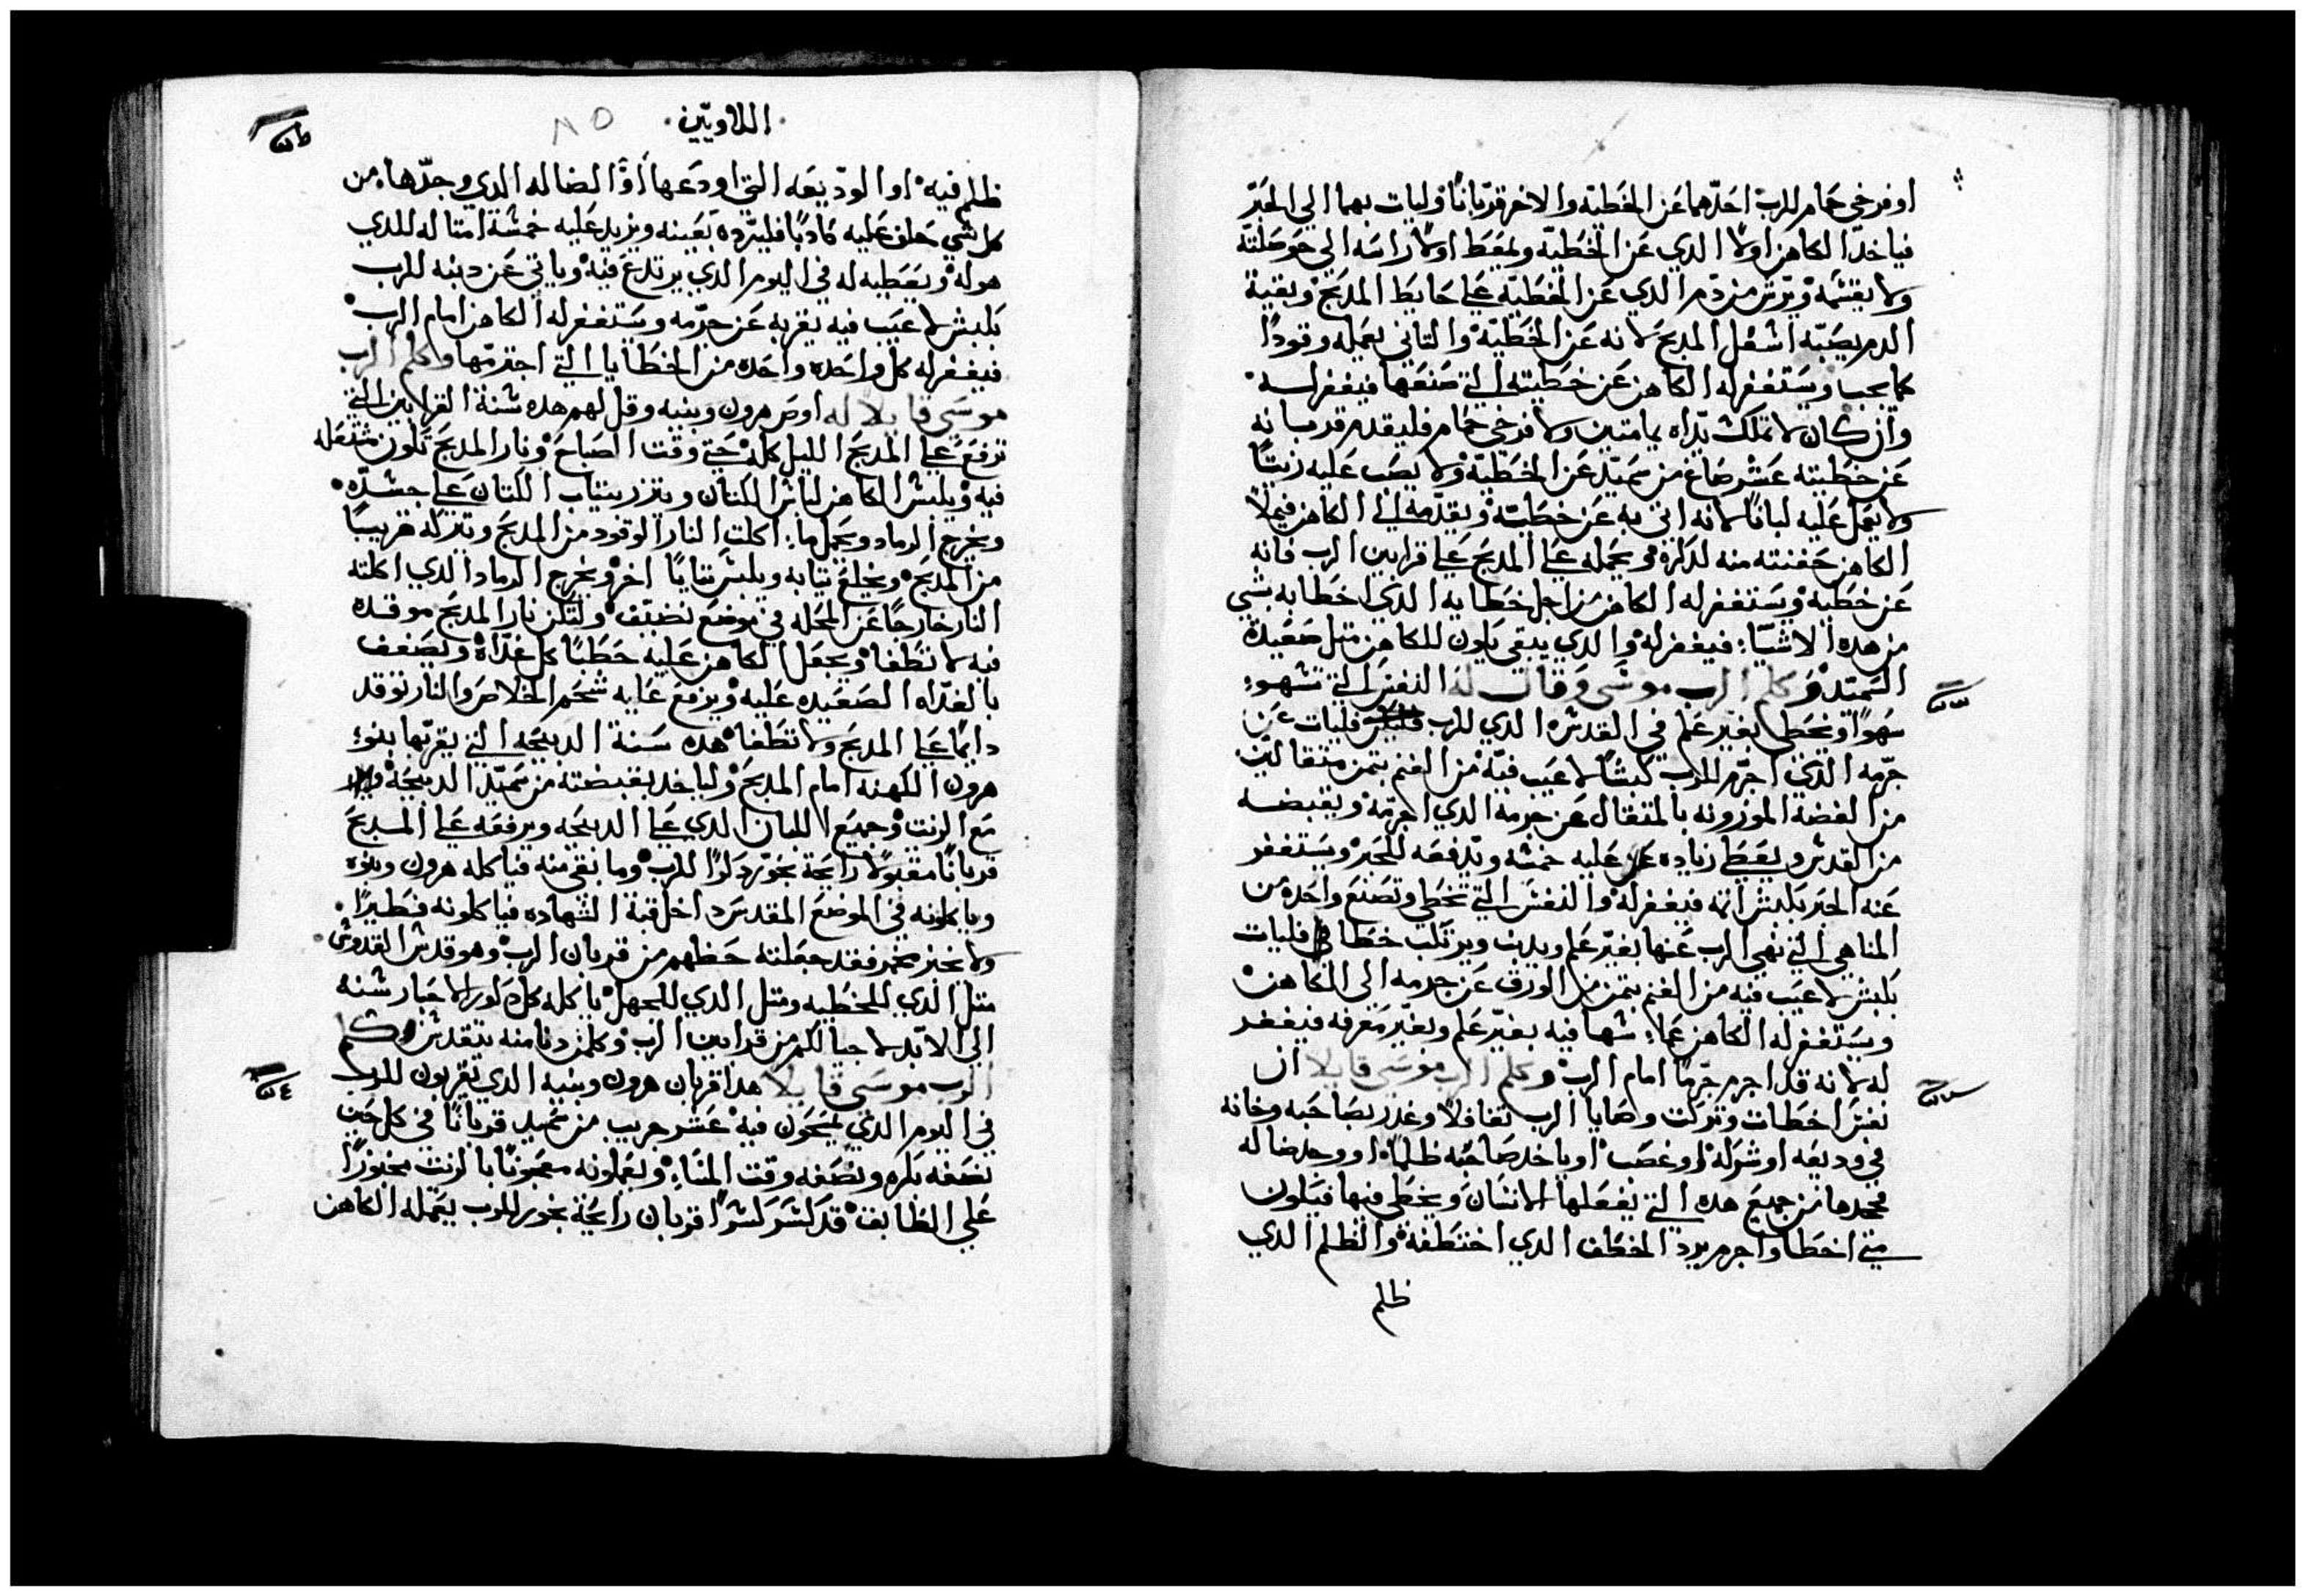 او فرخي حمام للرب احدهما عن الخطيه والاخر قربانا وليات بهما الي الحبر
فياخد الكاهن اولا الدي عن الخطيه ويمعط اولا راسه الي حوصلته
ولا يقسمه ويرش من دم الدي عن الخطيه علي حايط المدبح وبقية
الدم يصبه اسفل المدبح لانه عن الخطيه والتاني يعمله وقودا
كما يجب ويستغفر له الكاهن عن خطيته التي صنعها فيغفر له
وان كان لا تملك يداه يمامتين ولا فرخي حمام فليقدم قربانه
عن خطيته عشر صاع من سميد عن الخطيه ولا يصب عليه زيتا
ولا يجعل عليه لبانا لانه اتي به عن خطيته ويقدمه الي الكاهن فيملا
الكاهن حفنته منه لدكره ويحمله علي المدبح علي قرابين الرب فانه
عن خطيه ويستغفر له الكاهن من اجل خطايه الدي اخطا به بشي
من هده الاشيا فيغفر له والدي يبقي يكون للكاهن متل صعيدة
السميد وكلم الرب موسي وقال له النفس التي تسهو
سهوا وتخطي بغير علم في القدس الدي للرب فليات عن
جرمه الدي اجرم للرب كبشا لا عيب فيه من الغنم بتمن متقالين
من الفضة الموزونه بالمتقال عن جرمه الدي اجرمه ويقبضه
من القدس ويعطي زياده عليه خمسه وتدفعه للحبر ويستغفر
عنه الحبر بكبش اتمه فيغفر له والنفس التي تخطي وتصنع واحده من
المناهي التي نهي الرب عنها بغير علم ويدنب ويرتكب خطا فليات
بكبش لا عيب فيه من الغنم بتمن من الورق عن جرمه الي الكاهن
ويستغفر له الكاهن عما سها فيه بغير علم وبغير معرفه فيغفر
له لانه قد اجرم جرما امام الرب وكلم الرب موسي قايلا ان
نفس اخطات وتركت وصايا الرب تغافلا وغدر بصاحبه وخانه
في وديعه او شركه او غصب او ياخد صاحبه ظلما او وجد ضاله
فجحدها من جميع هده التي يفعلها الانسان ويخطي فيها فيكون
متي اخطا واجرم يرد الخطف الدي اختطفه والظلم الدي
ظلم
اللاويين
٨٥
ظلم فيه او الوديعه التي اودعها او الضاله الدي وجدها من
كل شي حلف عليه كادبا فليرده بعينه ويزيد عليه خمسة امتاله للدي
هو له ويعطيه له في اليوم الدي يرتدع فيه وياتي عن دنبه للرب
بكبش لا عيب فيه يقربه عن جرمه ويستغفر له الكاهن امام الرب
فيغفر له كل واحده واحده من الخطايا التي اجترمها وكلم الرب
موسي قايلا له اوص هرون وبنيه وقل لهم هده سنة القرابين التي
ترفع علي المدبح الليل كله حتي وقت الصباح ونار المدبح تكون مشتعله
فيه ويلبس الكاهن لباس الكتان ويتزر بتياب الكتان علي جسده
ويخرج الرماد ويحمل ما اكلت النار الوقود من المدبح وتتركه قريبا
من المدبح ويخلع تيابه ويلبس تيابا اخر ويخرج الرماد الدي اكلته
النار خارجا عن المحله في موضع نضيف ولتكن نار المدبح موقده
فيه لا تطفا ويجعل الكاهن عليه حطبا كل غداة ويضعف
بالغداه الصعيده عليه ويرفع عليه شحم الخلاص والنار توقد
دايما علي المدبح ولا تطفا هده سنة الدبيحه التي يقربها بنو
هرون الكهنه امام المدبح ولياخد بقبضته من سميد الدبيحه
مع الزيت وجميع اللبان الدي علي الدبيحه ويرفعه علي المدبح
قربانا مقبولا رايحة بخور دكرا للرب وما بقي منه فياكله هرون وبنوه
وياكلونه في الموضع المقدس داخل قبة الشهاده فياكلونه فطيرا
ولا يختبز بخمير فقد جعلته حظهم من قربان الرب وهو قدس القدوس
متل الدي للخطيه ومتل الدي للجهل ياكله كل دكور الاحبار سنه
الي الابد لاجيالكم من قرابين الرب وكلمن دنا منه يتقدس وكلم
الرب موسي قايلا هدا قربان هرون وبنيه الدي يقربون للرب
في اليوم الدي يمسحون فيه عشر جريب من سميد قربانا في كل حين
نصفه بكره ونصفه وقت المسا ويعملونه معجونا بالزيت مخبوزا
علي الطابق قد كسر كسرا قربان رايحة بخور للرب يعمله الكاهن